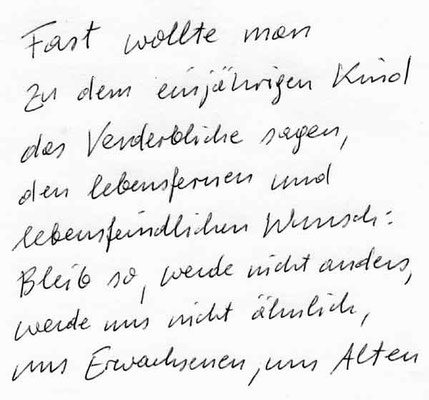 Fast wollte man
zu dem einjährigen Kind
das Verderbliche sagen,
den lebensfernen und
lebensfeindlichen Wunsch:
Bleib so, werde nicht anders,
werde uns nicht ähnlich,
uns Erwachsenen, uns Alten